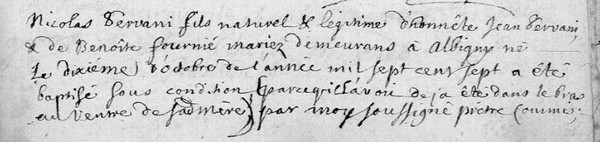 Nicolas Servani fils naturel & légitime d'honnête Jean Servani
& de Benoîte fournié mariez demeurans à Albigny né
Le dixiéme d'octobre de l'année mil sept cent sept a été
baptisé sous condition (parcequil avoit deja été dans le bras
au ventre de sa mère) par moy soussigné prêtre commis